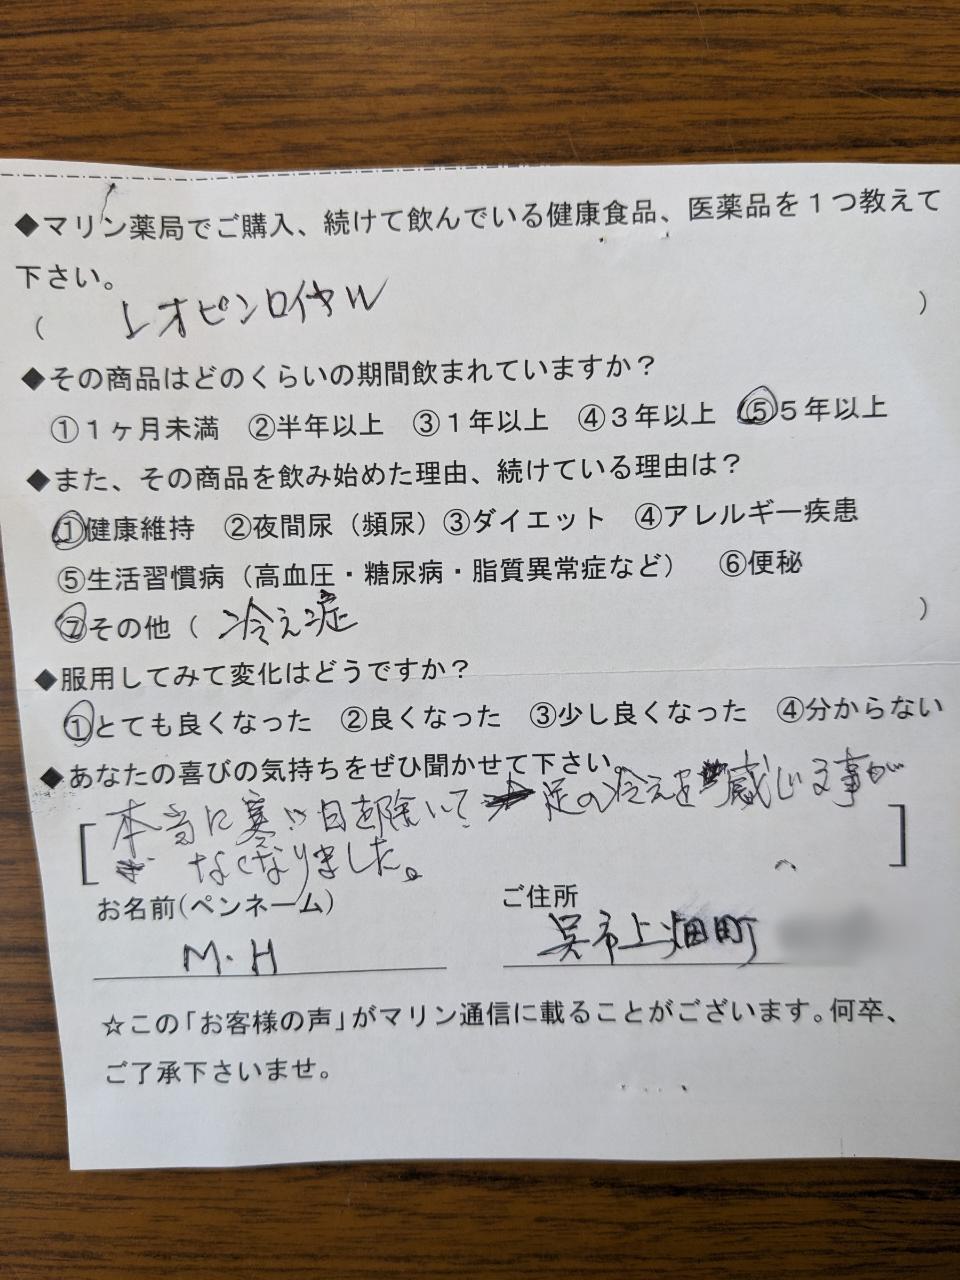 ◆マリン薬局でご購入、続けて飲んでいる健康食品、医薬品を１つ教えて
下さい。
（ レオピンロイヤル ）
◆その商品はどのくらいの期間飲まれていますか？
①１ヶ月未満 ②半年以上 ③１年以上 ④３年以上 ⑤５年以上
◆また、その商品を飲み始めた理由、続けている理由は？
①健康維持 ②夜間尿（頻尿）③ダイエット ④アレルギー疾患
⑤生活習慣病（高血圧・糖尿病・脂質異常症など） ⑥便秘
⑦その他（ 冷え症 ）
◆服用してみて変化はどうですか？
①とても良くなった ②良くなった ③少し良くなった ④分からない
◆あなたの喜びの気持ちをぜひ聞かせて下さい。
[ 本当に寒い日を除いて 足の冷えを感じる事が
なくなりました。 ]
お名前(ペンネーム) ご住所
M.H 呉市上畑町
☆この「お客様の声」がマリン通信に載ることがございます。何卒、
ご了承下さいませ。